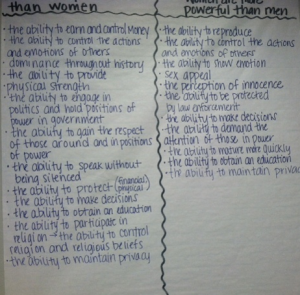 than women
· the ability to earn and control Money
· the ability to control the actions
and emotions of others
· dominance throughout history
· the ability to provide
· physical strength
· the ability to engage in
politics and hold positions of
power in government
· the ability to gain the respect
of those around and in positions
of power
· the ability to speak without
being silenced
· the ability to protect (financial/physical)
· the ability to make decisions
· the ability to obtain an education
· the ability to participate in
religion → the ability to control
religion and religious beliefs
· the ability to maintain privacy
powerful than men
· the ability to reproduce
· the ability to control the actions
and emotions of others
· the ability to show emotion
· sex appeal
· the perception of innocence
· the ability to be protected
by law enforcement
· the ability to make decisions
· the ability to demand the
attention of those in power
· the ability to mature more quickly
· the ability to obtain an education
· the ability to maintain privac